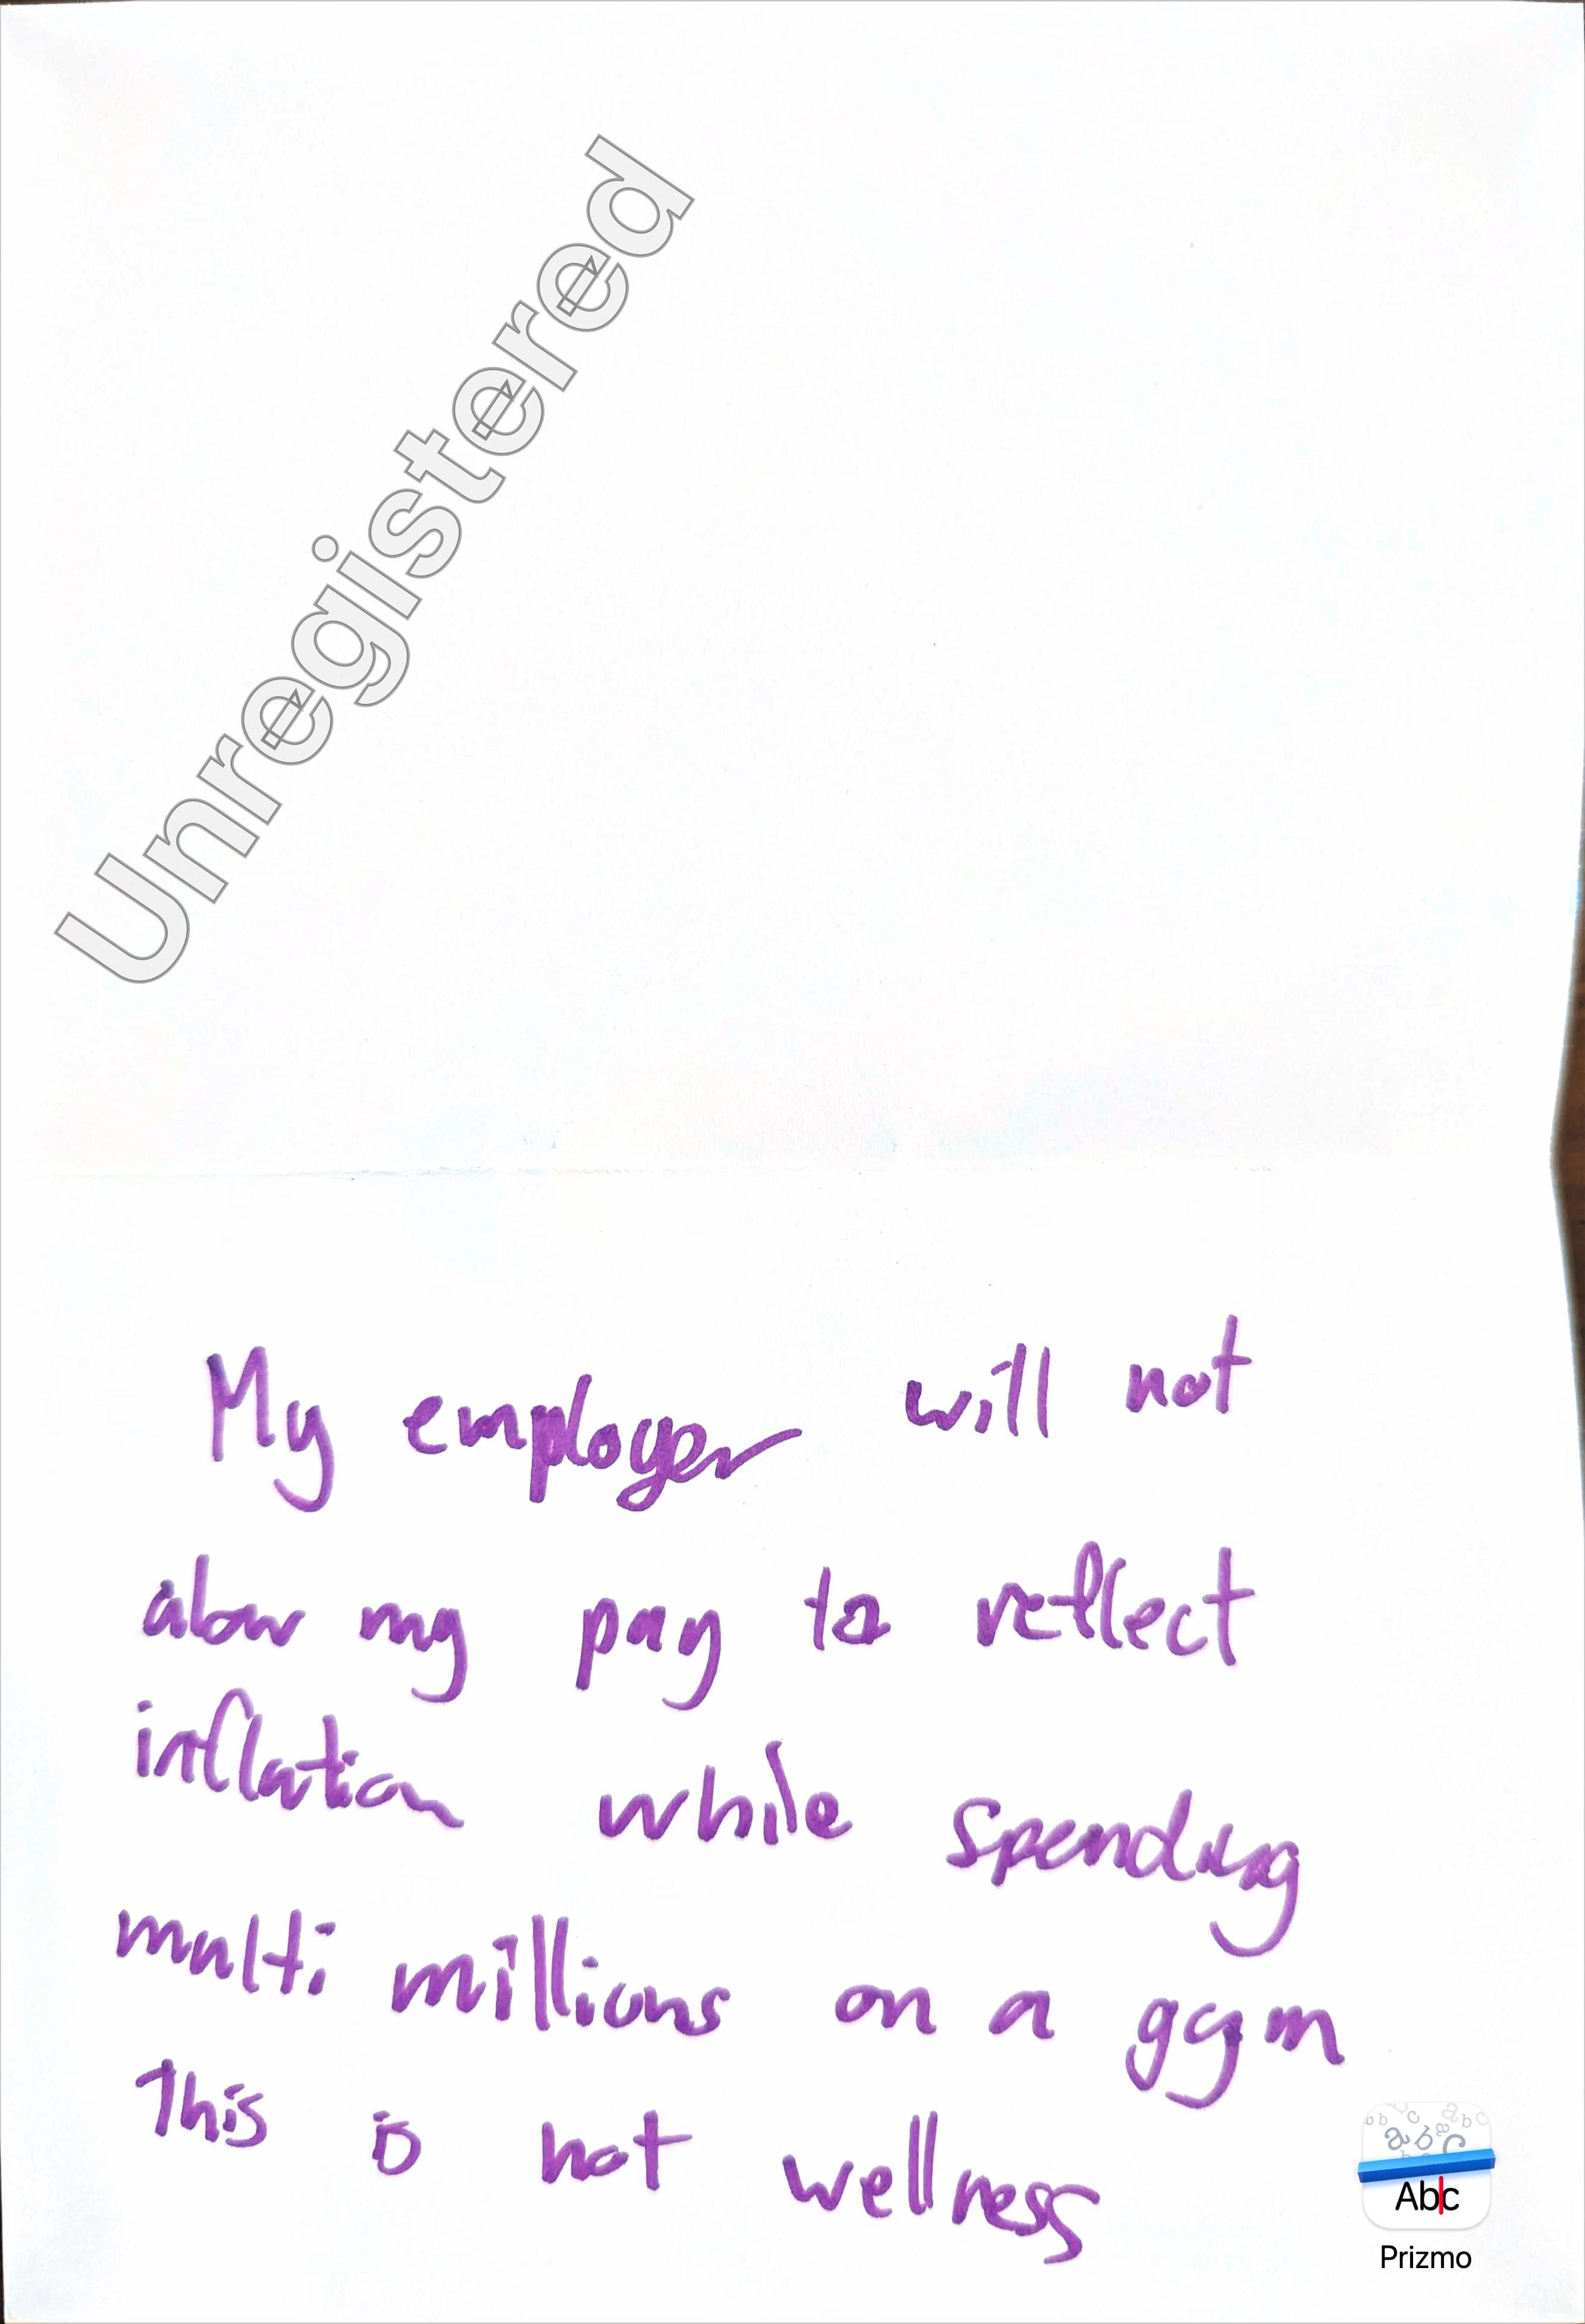 Unregistered
My employer will not
alow my pay to reflect
inflation while spending
multi millions on a gym
This is not wellness
Abc
Prizmo